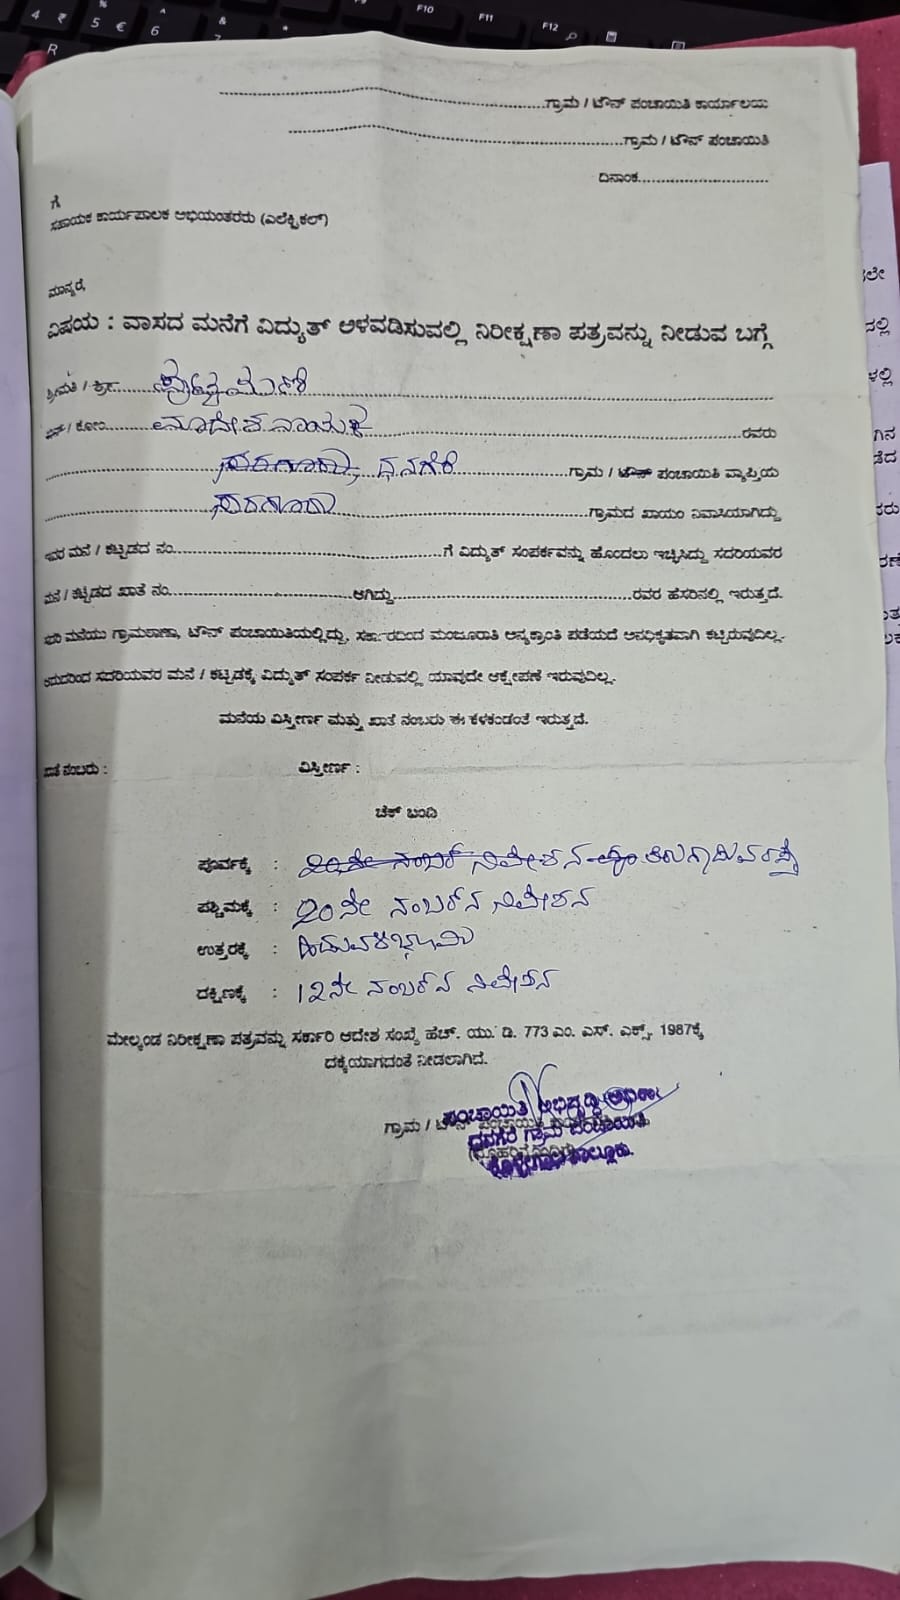 4 ₹ % 5 € ^ 6 & 7 * F10 F11 F12
R
........ಗ್ರಾಮ / ಟೌನ್ ಪಂಚಾಯಿತಿ ಕಾರ್ಯಾಲಯ
........ಗ್ರಾಮ / ಟೌನ್ ಪಂಚಾಯಿತಿ
ದಿನಾಂಕ........
ಗೆ
ಸಹಾಯಕ ಕಾರ್ಯಪಾಲಕ ಅಭಿಯಂತರರು (ಎಲೆಕ್ಟ್ರಿಕಲ್)
ಮಾನ್ಯರೆ,
ವಿಷಯ : ವಾಸದ ಮನೆಗೆ ವಿದ್ಯುತ್ ಅಳವಡಿಸುವಲ್ಲಿ ನಿರೀಕ್ಷಣಾ ಪತ್ರವನ್ನು ನೀಡುವ ಬಗ್ಗೆ
ಶ್ರೀಮತಿ / ಶ್ರೀ........ ಪುಟ್ಟಮಣಿ
ಬಿನ್ / ಕೋಂ........ ಮಾದೇಶನಾಯಕ ........ರವರು
........ ಧನಗೆರೆ ........ಗ್ರಾಮ / ಟೌನ್ ಪಂಚಾಯಿತಿ ವ್ಯಾಪ್ತಿಯ
........ ಸರಗೂರು ........ಗ್ರಾಮದ ಖಾಯಂ ನಿವಾಸಿಯಾಗಿದ್ದು
ಇವರ ಮನೆ / ಕಟ್ಟಡದ ನಂ........ಗೆ ವಿದ್ಯುತ್ ಸಂಪರ್ಕವನ್ನು ಹೊಂದಲು ಇಚ್ಛಿಸಿದ್ದು ಸದರಿಯವರ
ಮನೆ / ಕಟ್ಟಡದ ಖಾತೆ ನಂ........ಆಗಿದ್ದು........ರವರ ಹೆಸರಿನಲ್ಲಿ ಇರುತ್ತದೆ.
ಸದರಿ ಮನೆಯು ಗ್ರಾಮಠಾಣಾ, ಟೌನ್ ಪಂಚಾಯಿತಿಯಲ್ಲಿದ್ದು, ಸರ್ಕಾರದಿಂದ ಮಂಜೂರಾತಿ ಅನ್ಯಕ್ರಾಂತಿ ಪಡೆಯದೆ ಅನಧಿಕೃತವಾಗಿ ಕಟ್ಟಿರುವುದಿಲ್ಲ.
ಆದುದರಿಂದ ಸದರಿಯವರ ಮನೆ / ಕಟ್ಟಡಕ್ಕೆ ವಿದ್ಯುತ್ ಸಂಪರ್ಕ ನೀಡುವಲ್ಲಿ ಯಾವುದೇ ಆಕ್ಷೇಪಣೆ ಇರುವುದಿಲ್ಲ.
ಮನೆಯ ವಿಸ್ತೀರ್ಣ ಮತ್ತು ಖಾತೆ ನಂಬರು ಈ ಕೆಳಕಂಡಂತೆ ಇರುತ್ತದೆ.
ಖಾತೆ ನಂಬರು : ವಿಸ್ತೀರ್ಣ :
ಚೆಕ್ ಬಂದಿ
ಪೂರ್ವಕ್ಕೆ : 20ನೇ ನಂಬರ್ ನಿವೇಶನ
ಪಶ್ಚಿಮಕ್ಕೆ : 20ನೇ ನಂಬರ್‌ನ ನಿವೇಶನ
ಉತ್ತರಕ್ಕೆ : ಹಿಡುವಳಿಭೂಮಿ
ದಕ್ಷಿಣಕ್ಕೆ : 12ನೇ ನಂಬರ್‌ನ ನಿವೇಶನ
ಮೇಲ್ಕಂಡ ನಿರೀಕ್ಷಣಾ ಪತ್ರವನ್ನು ಸರ್ಕಾರಿ ಆದೇಶ ಸಂಖ್ಯೆ ಹೆಚ್. ಯು. ಡಿ. 773 ಎಂ. ಎಸ್. ಎಕ್ಸ್. 1987ಕ್ಕೆ
ದಕ್ಕೆಯಾಗದಂತೆ ನೀಡಲಾಗಿದೆ.
ಪಂಚಾಯಿತಿ ಅಭಿವೃದ್ಧಿ ಅಧಿಕಾರಿ
ಗ್ರಾಮ / ಟೌನ್ ಪಂಚಾಯಿತಿ
ಧನಗೆರೆ ಗ್ರಾಮ ಪಂಚಾಯಿತಿ
ಕೊಳ್ಳೇಗಾಲ ತಾಲ್ಲೂಕು.